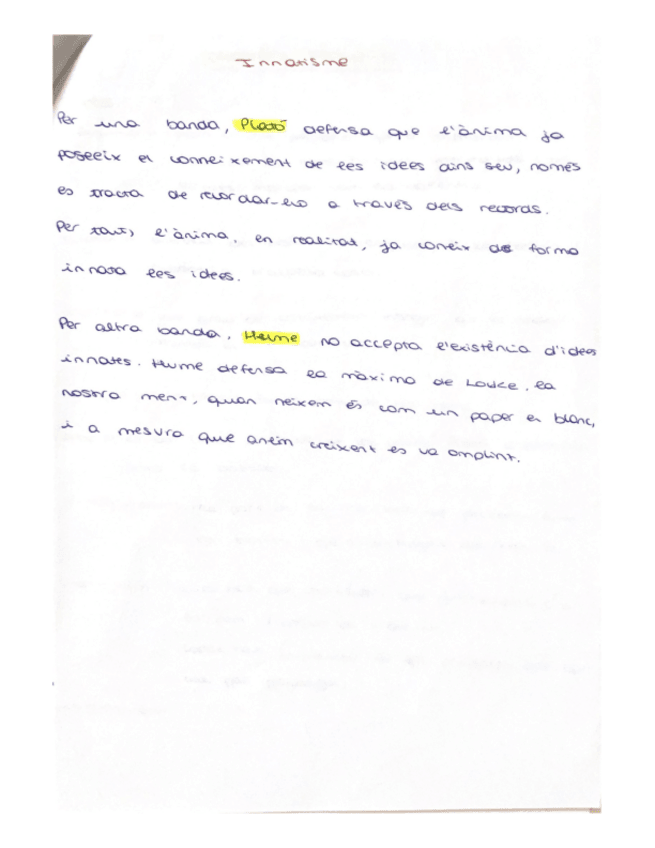 Innatisme
Per una banda, Plató defensa que l'ànima ja
poseeix el coneixement de les idees dins seu, només
es tracta de recordar-ho a través dels records.
Per tant, l'ànima, en realitat, ja coneix de forma
innata les idees.
Per altra banda, Hume no accepta l'existència d'idees
innates. Hume defensa la màxima de Locke, la
nostra ment, quan neixem és com un paper en blanc,
i a mesura que anem creixent es va omplint.